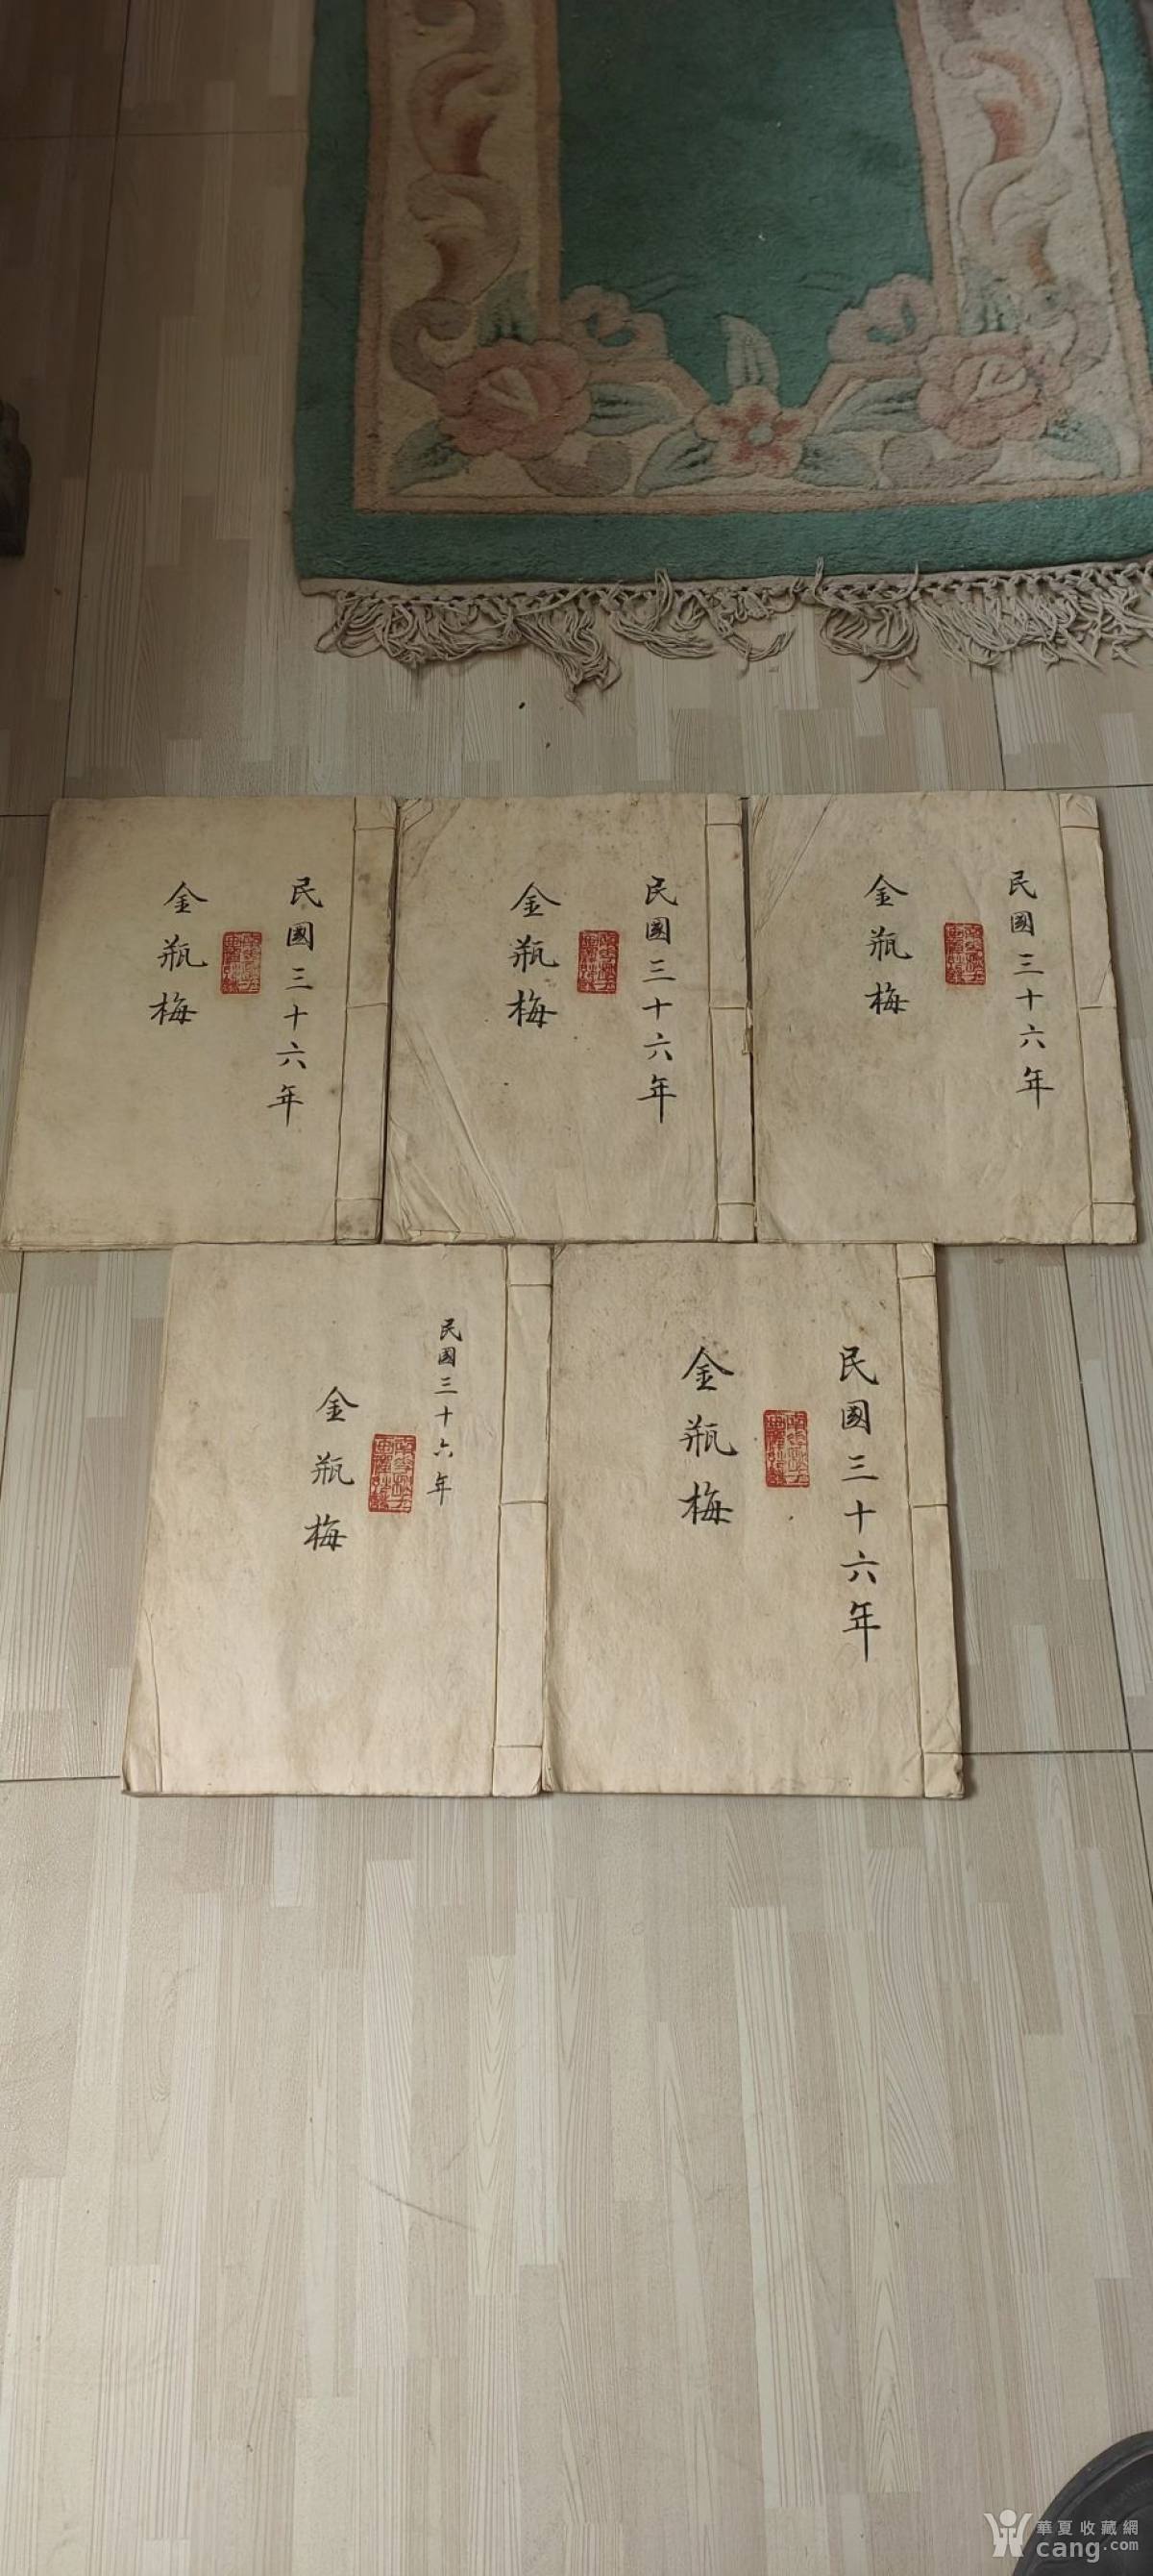 民國三十六年
金瓶梅
民國三十六年
金瓶梅
民國三十六年
金瓶梅
民國三十六年
金瓶梅
民國三十六年
金瓶梅
華夏收藏網
cang.com